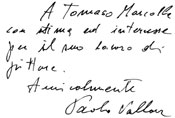 A Tommaso Marcolla
con stima ed interesse
per il suo lavoro di
pittore.
Amicalmente
Paolo